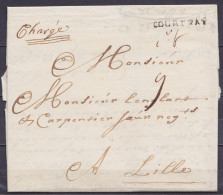 Chargée
COURTRAY
Monsieur
Monsieur Constant
et Carpentier
A Lille